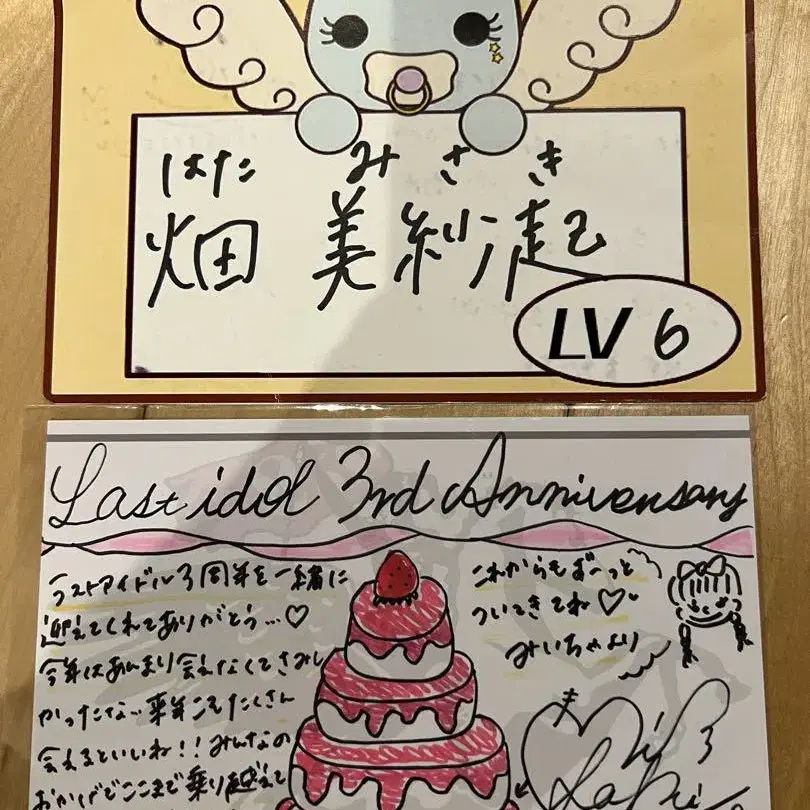 はた みさき
畑 美紗起
LV 6
Last idol 3rd Anniversary
ラストアイドル3周年を一緒に
迎えてくれてありがとう…♡
今年はあんまり会えなくてさみし
かったな…来年こそたくさん
会えるといいね!!みんなの
おかげでここまで乗り越えて
これからもずーっと
ついてきてね♡
みいちゃより